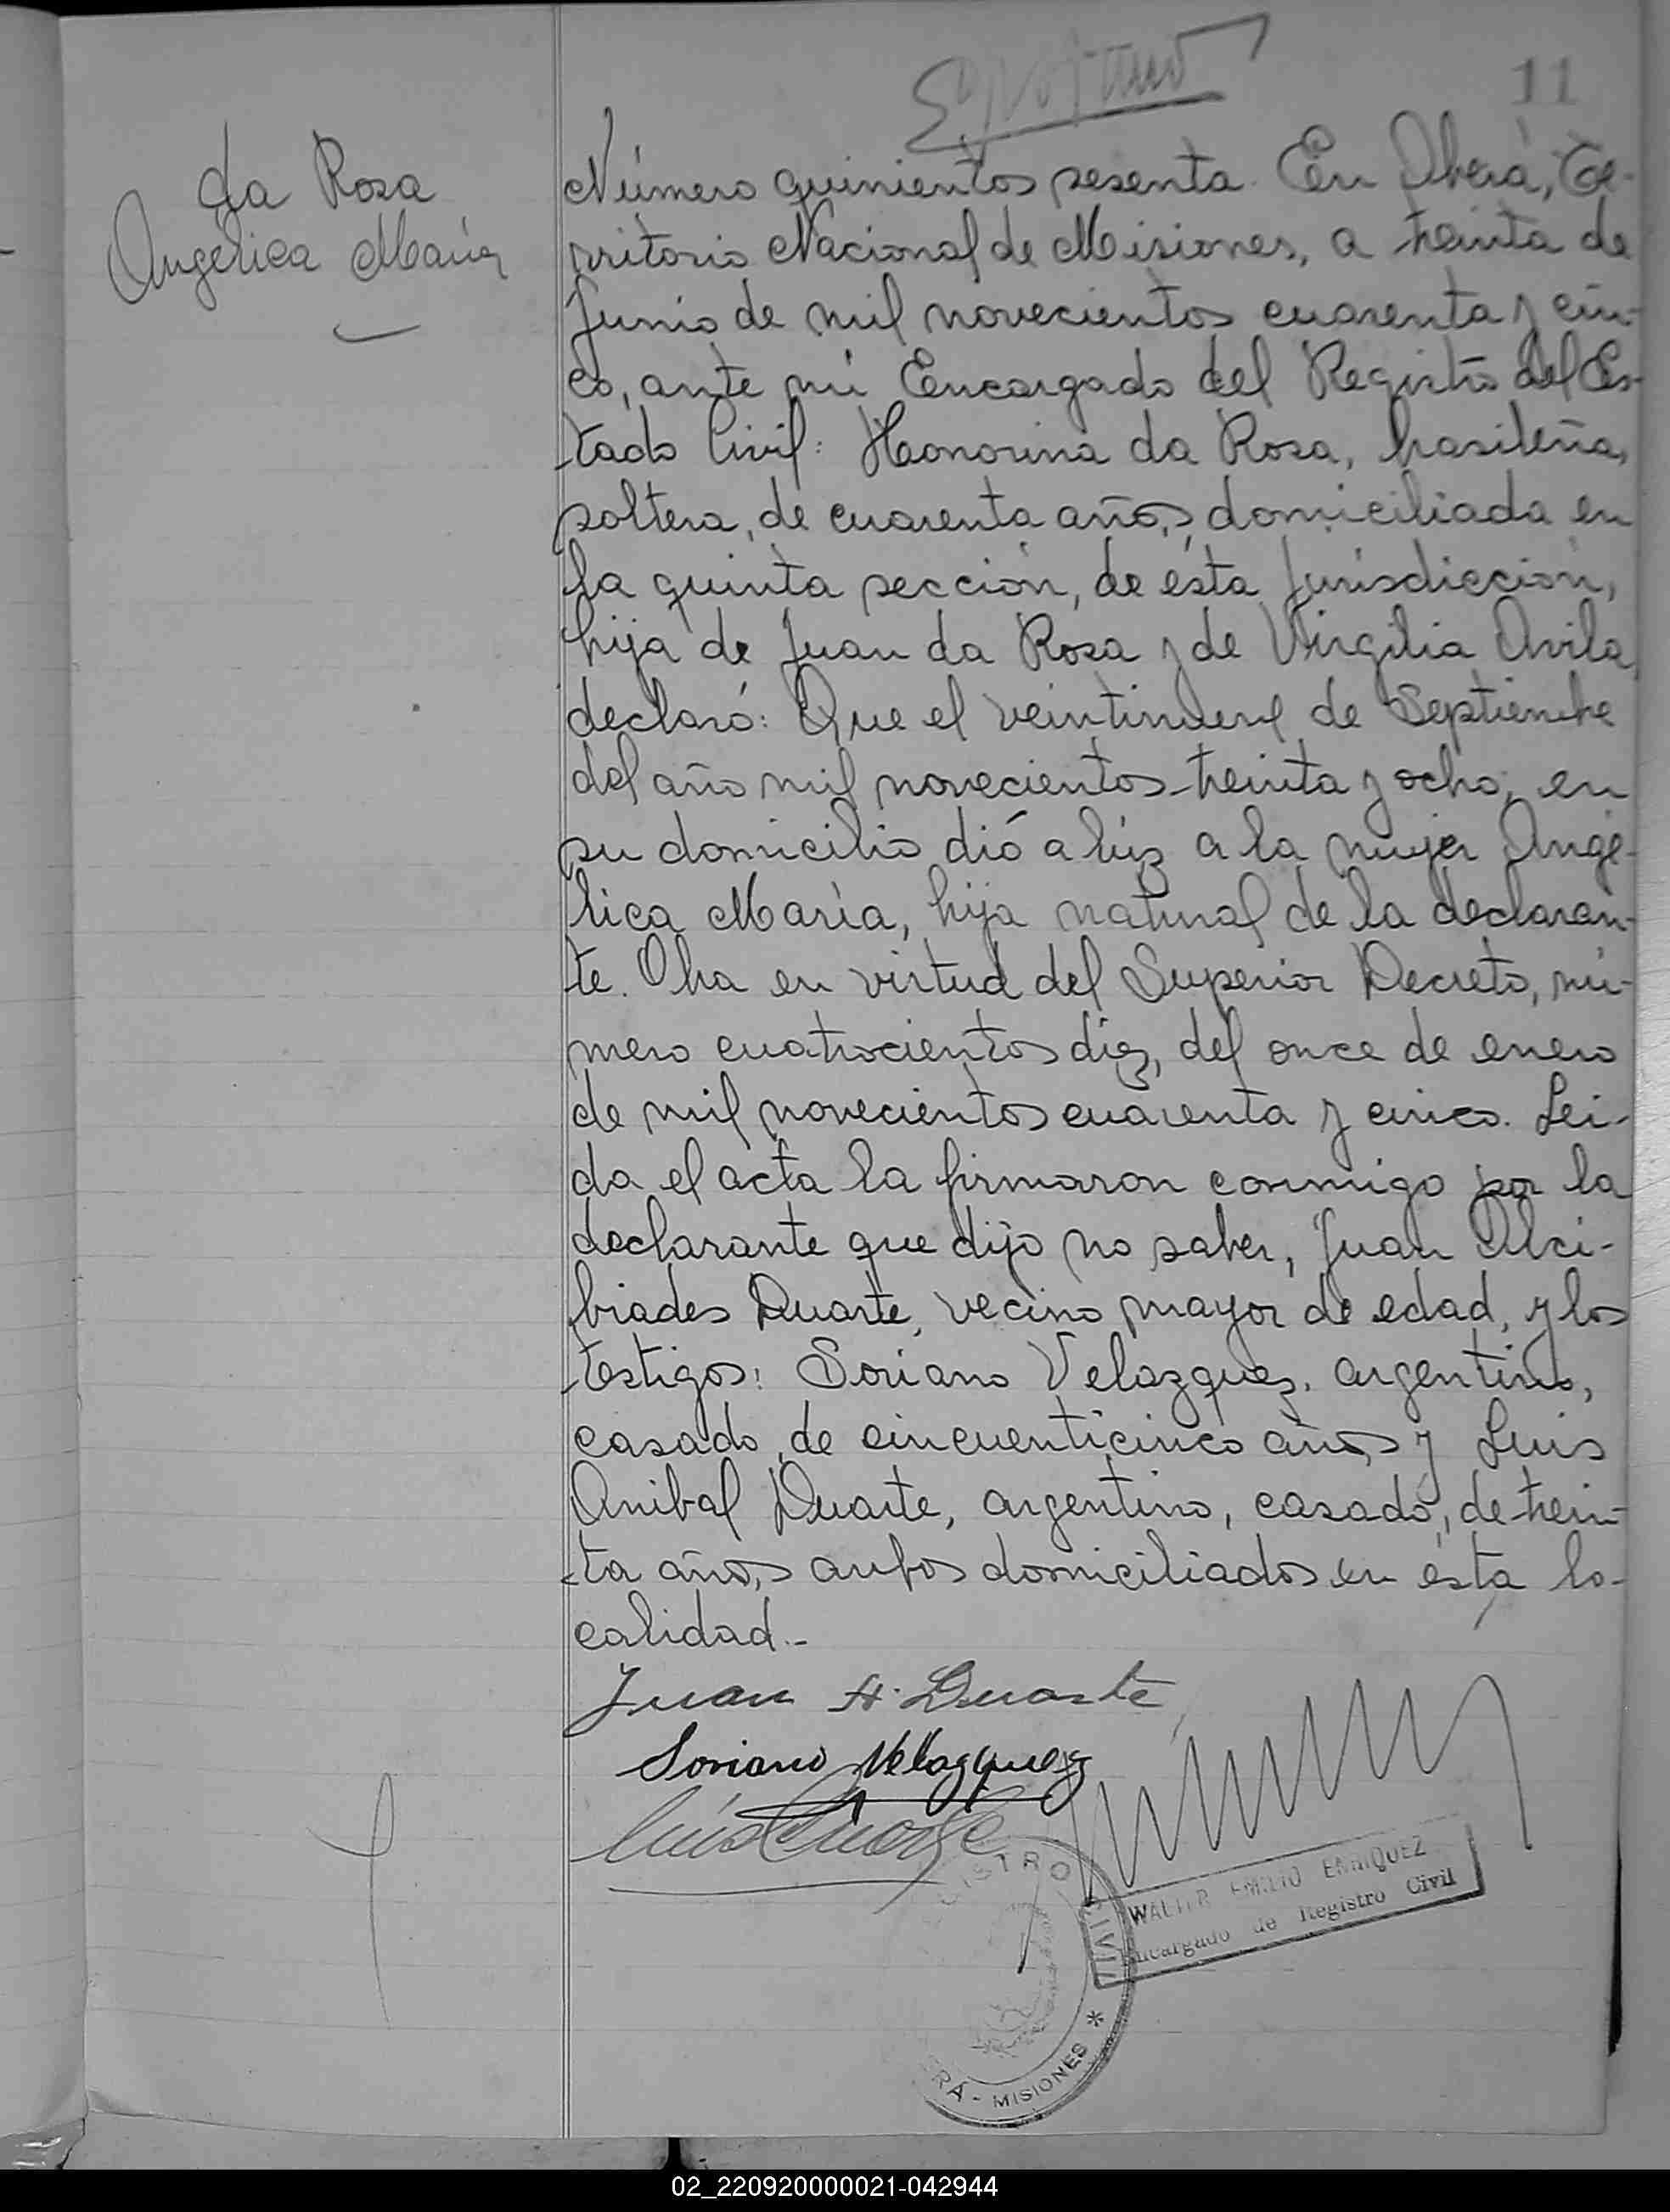 11
da Rosa
Angelica María
Número quinientos sesenta. En Oberá, Te-
rritorio Nacional de Misiones, a treinta de
Junio de mil novecientos cuarenta y cin-
co, ante mí Encargado del Registro del Es-
tado Civil: Honorina da Rosa, brasileña,
soltera, de cuarenta años, domiciliada en
la quinta sección, de ésta Jurisdicción,
hija de Juan da Rosa y de Virgilia Avila,
declaró: Que el veintinueve de Septiembre
del año mil novecientos treinta y ocho, en
su domicilio dió a lúz a la mujer Angé-
lica María, hija natural de la declaran-
te. Obra en virtud del Superior Decreto, nú-
mero cuatrocientos diez, del once de enero
de mil novecientos cuarenta y cinco. Leí-
da el acta la firmaron conmigo por la
declarante que dijo no saber, Juan Alci-
biades Duarte, vecino mayor de edad, y los
testigos: Soriano Velazquez, argentino,
casado, de cincuenticinco años y Luis
Anibal Duarte, argentino, casado, de trein-
ta años, ambos domiciliados en ésta lo-
calidad.-
Juan A. Duarte
Soriano Velazquez
Luis Duarte
WALTER EMILIO ENRIQUEZ
Encargado de Registro Civil
REGISTRO CIVIL
RÁ - MISIONES *
02_220920000021-042944